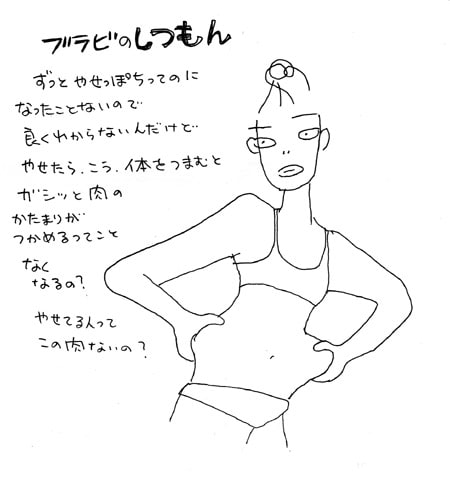 ブラビのしつもん
ずっとやせっぽちってのに
なったことないので
良くわからないんだけど
やせたら、こう、体をつまむと
ガシッと肉の
かたまりが
つかめるってこと
なく
なるの?
やせてる人って
この肉ないの?